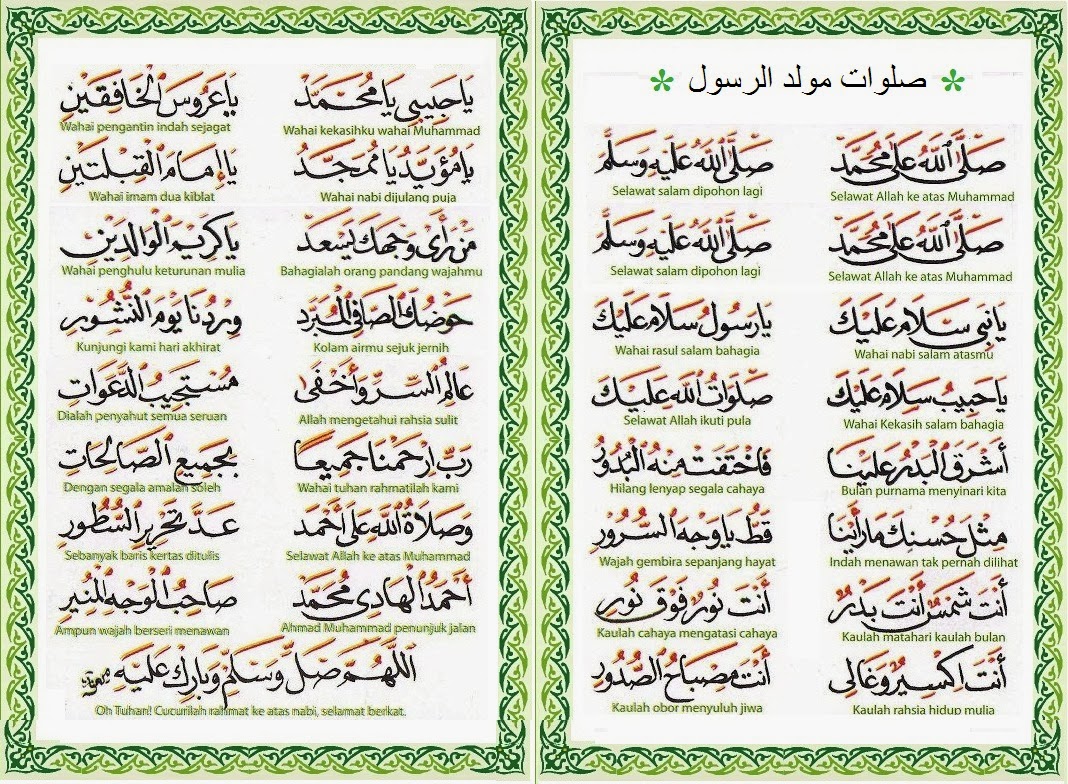 صلوات مولد الرسول
صَلَّى اللهُ عَلَى مُحَمَّدْ
Selawat Allah ke atas Muhammad
صَلَّى اللهُ عَلَيْهِ وَسَلَّمْ
Selawat salam dipohon lagi
صَلَّى اللهُ عَلَى مُحَمَّدْ
Selawat Allah ke atas Muhammad
صَلَّى اللهُ عَلَيْهِ وَسَلَّمْ
Selawat salam dipohon lagi
يَا نَبِي سَلَامْ عَلَيْكَ
Wahai nabi salam atasmu
يَارَسُولْ سَلَامْ عَلَيْكَ
Wahai rasul salam bahagia
يَاحَبِيبْ سَلَامْ عَلَيْكَ
Wahai Kekasih salam bahagia
صَلَوَاتُ اللهْ عَلَيْكَ
Selawat Allah ikuti pula
أَشْرَقَ الْبَدْرُ عَلَيْنَا
Bulan purnama menyinari kita
فَاخْتَفَتْ مِنْهُ الْبُدُورُ
Hilang lenyap segala cahaya
مِثْلَ حُسْنِكَ مَارَأَيْنَا
Indah menawan tak pernah dilihat
قَطُّ يَاوَجْهَ السُّرُورِ
Wajah gembira sepanjang hayat
أَنْتَ شَمْسٌ أَنْتَ بَدْرٌ
Kaulah matahari kaulah bulan
أَنْتَ نُورٌ فَوْقَ نُورِ
Kaulah cahaya mengatasi cahaya
أَنْتَ اِكْسِيرٌ وَغَالِي
Kaulah rahsia hidup mulia
أَنْتَ مِصْبَاحُ الصُّدُورِ
Kaulah obor menyuluh jiwa
يَاحَبِيبِي يَامُحَمَّدْ
Wahai kekasihku wahai Muhammad
يَاعَرُوسَ الْخَافِقَيْنِ
Wahai pengantin indah sejagat
يَامُؤَيَّدْ يَامُمَجَّدْ
Wahai nabi dijulang puja
يَاإِمَامَ الْقِبْلَتَيْنِ
Wahai imam dua kiblat
مَنْ رَأَى وَجْهَكَ يَسْعَدْ
Bahagialah orang pandang wajahmu
يَاكَرِيمَ الْوَالِدَيْنِ
Wahai penghulu keturunan mulia
حَوْضُكَ الصَّافِى الْمُبَرَّدْ
Kolam airmu sejuk jernih
وِرْدُنَا يَوْمَ النُّشُورِ
Kunjungi kami hari akhirat
عَالِمُ السِّرِّ وَأَخْفَى
Allah mengetahui rahsia sulit
مُسْتَجِيبُ الدَّعَوَاتِ
Dialah penyahut semua seruan
رَبِّ ارْحَمْنَا جَمِيعًا
Wahai tuhan rahmatilah kami
بِجَمِيعِ الصَّالِحَاتِ
Dengan segala amalan soleh
وَصَلَاةُ اللهِ عَلَى أَحْمَدْ
Selawat Allah ke atas Muhammad
عَدَّ تَحْرِيرِ السُّطُورِ
Sebanyak baris kertas ditulis
أَحْمَدُ الْهَادِى مُحَمَّدْ
Ahmad Muhammad penunjuk jalan
صَاحِبُ الْوَجْهِ الْمُنِيرِ
Ampun wajah berseri menawan
اَللَّهُمَّ صَلِّ وَسَلِّمْ وَبَارِكْ عَلَيْهِ
Oh Tuhan! Cucurilah rahmat ke atas nabi, selamat berkat.